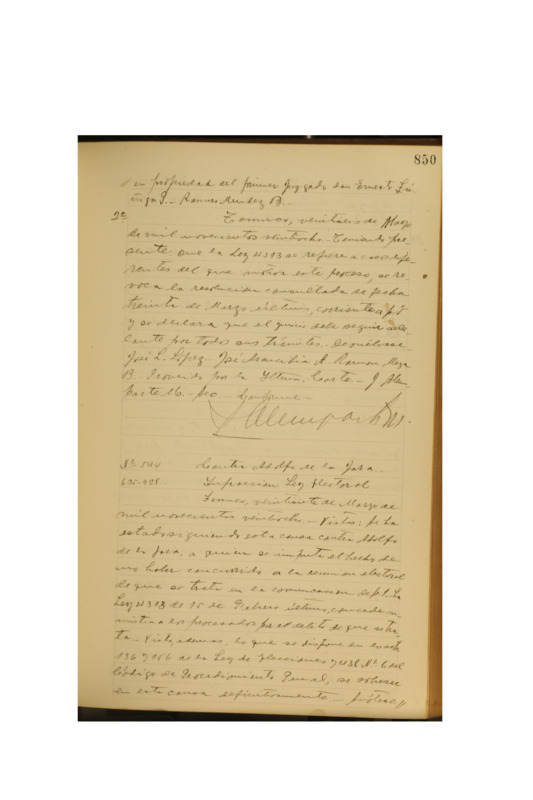 850
en propiedad del primer Juzgado don Ernesto Zú-
ñiga S. - Ramon Mendez B. -
2a
Temuco, veintiseis de Mayo
de mil novecientos veintiocho. Teniendo pre-
sente: que la Ley 4313 se refiere a casos dife-
rentes del que motiva este proceso, se re-
voca la resolucion consultada de fecha
treinta de Marzo último, corriente a f. 5
y se declara que el juicio debe seguir ade-
lante por todos sus trámites. Devuélvase.
José L. López - José Arancibia A. Ramon Meza
B. - Proveido por la Iltma. Corte. - J. Alem-
parte M. - Sec Conforme -
J Alemparte M.
No. 544
Contra Adolfo de la Jara
635-928
Infraccion Ley Electoral
Temuco, veintisiete de Marzo de
mil novecientos veintiocho. - Vistos: Se ha
estado siguiendo esta causa contra Adolfo
de la Jara, a quien se imputa el hecho de
no haber concurrido a la reunion electoral
de que se trata en la comunicacion de f. 1. La
Ley 4313 de 15 de Febrero último, concede
amnistia a los procesados por el delito de que se tra-
ta. Visto, ademas, lo que se dispone en
136 y 166 de la Ley de Elecciones y 438 No. 6 del
Código de Procedimiento Penal, se sobresee
en esta causa definitivamente. -